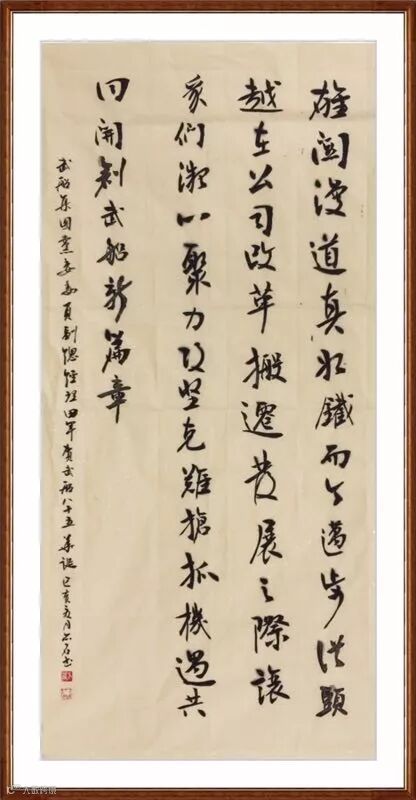 雄関漫道真如鐵而今邁步從頭
越在公司改革搬遷發展之際讓
我們凝心聚力攻堅克難搶抓機遇共
同開創武船新篇章
武船集团黨委委員副總經理田军賀武船八十五華誕己亥